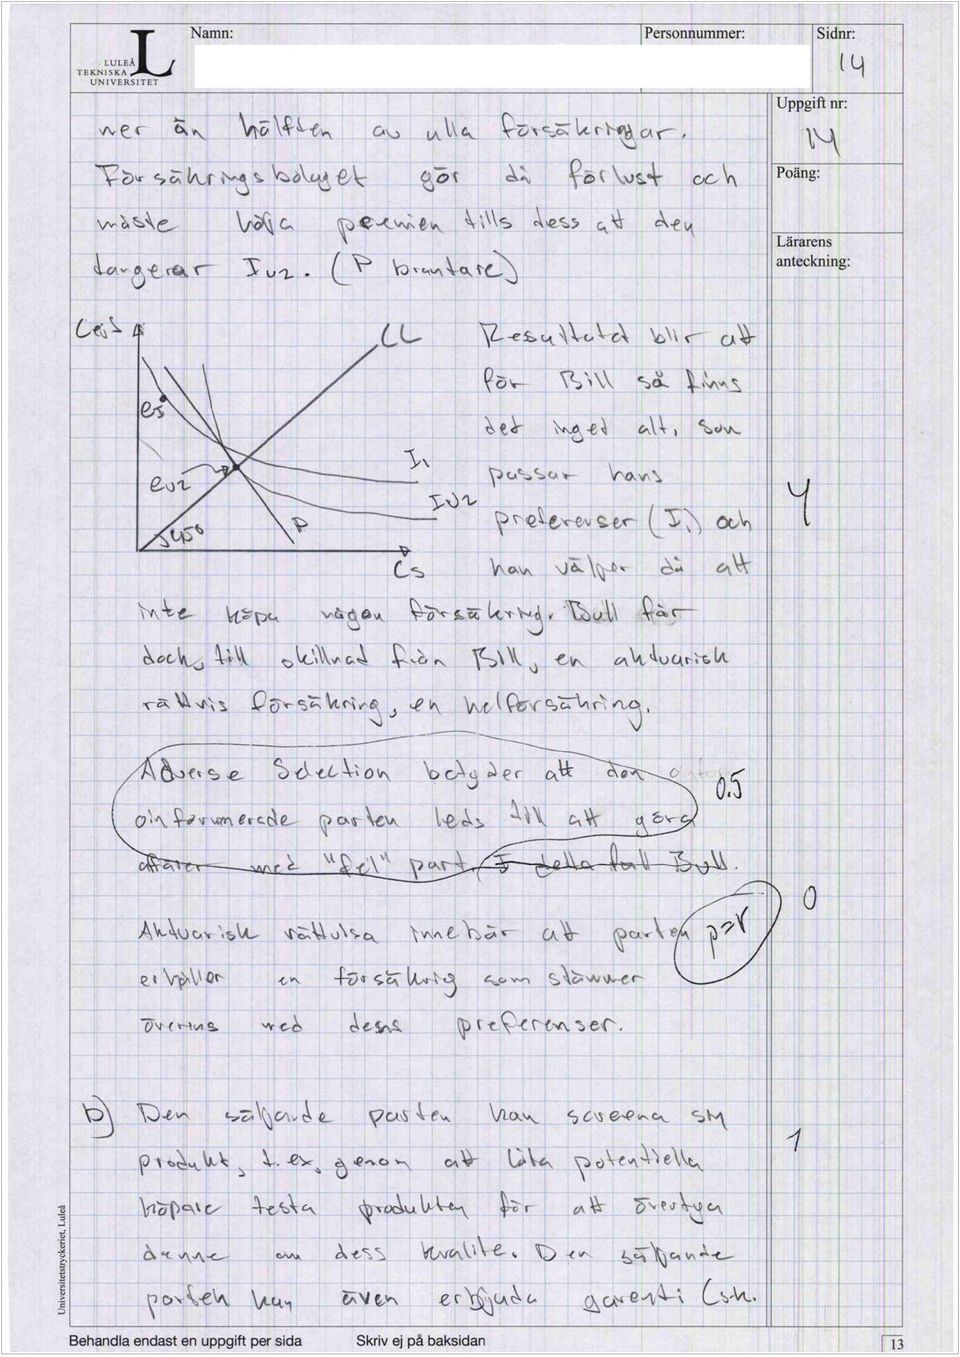 LULEÅ
TEKNISKA
UNIVERSITET
Namn:
Personnummer:
Sidnr:
14
Uppgift nr:
14
Poäng:
Lärarens
anteckning:
ner än hälften av alla försäkringar.
Försäkringsbolaget gör då förlust och
måste höja premien tills dess att den
tangerar IU2. (P brantare)
CL
Resultatet blir att
för Bill så finns
det inget alt. som
passar hans
preferenser (I1) och
han väljer då att
eJ
eU2
I1
IU2
45°
P
CS
4
inte köpa någon försäkring. Bull får
dock, till skillnad från Bill, en aktuarisk
rättvis försäkring, en helförsäkring.
Adverse Selection betyder att den
oinformerade parten leds till att göra
affärer med "fel" part. I detta fall Bull.
0.5
0
Aktuarisk rättvisa innebär att parten
p=r
erhåller en försäkrig som stämmer
överens med dess preferenser.
b) Den säljande parten kan screena sin
produkt, t.ex, genom att låta potentiella
köpare testa produkten för att övertyga
denne om dess kvalite. Den säljande
parten kan även erbjuda garanti (s.k.
1
Universitetstryckeriet, Luleå
Behandla endast en uppgift per sida
Skriv ej på baksidan
13